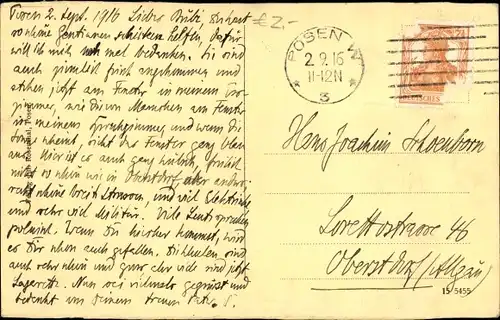 Posen 2. Sept. 1916 Lieber Bubi, Du hast
so schöne Gentianen schicken helfen, dafür
will ich mich mal bedanken. Sie sind
auch ziemlich frisch angekommen und
stehen jetzt am Fenster in meinem
zimmer, wie die am Fenster
in meinem Sprechzimmer, und wenn die
Sonne scheint, sieht das Fenster ganz
aus. Hier ist es auch ganz hübsch, freilich
nicht so schön wie in Oberstdorf, aber
recht schöne breite Strassen, und viel Elektrische
und sehr viel Militär. Viele Leute sprechen
polnisch. Wenn Du hierher kommst, wird
es Dir schon auch gefallen. Die Schulen sind
auch sehr schön und gross, aber viele sind jetzt
Lazarette. Nun sei vielmals gegrüsst und
bedankt von Deinem treuen
£2-
POSEN W
2.9.16
11-12N
* 3 *
DEUTSCHES
Hans Joachim Schoenborn
Lorettostrasse 46
Oberstdorf (Allgäu)
15 5455